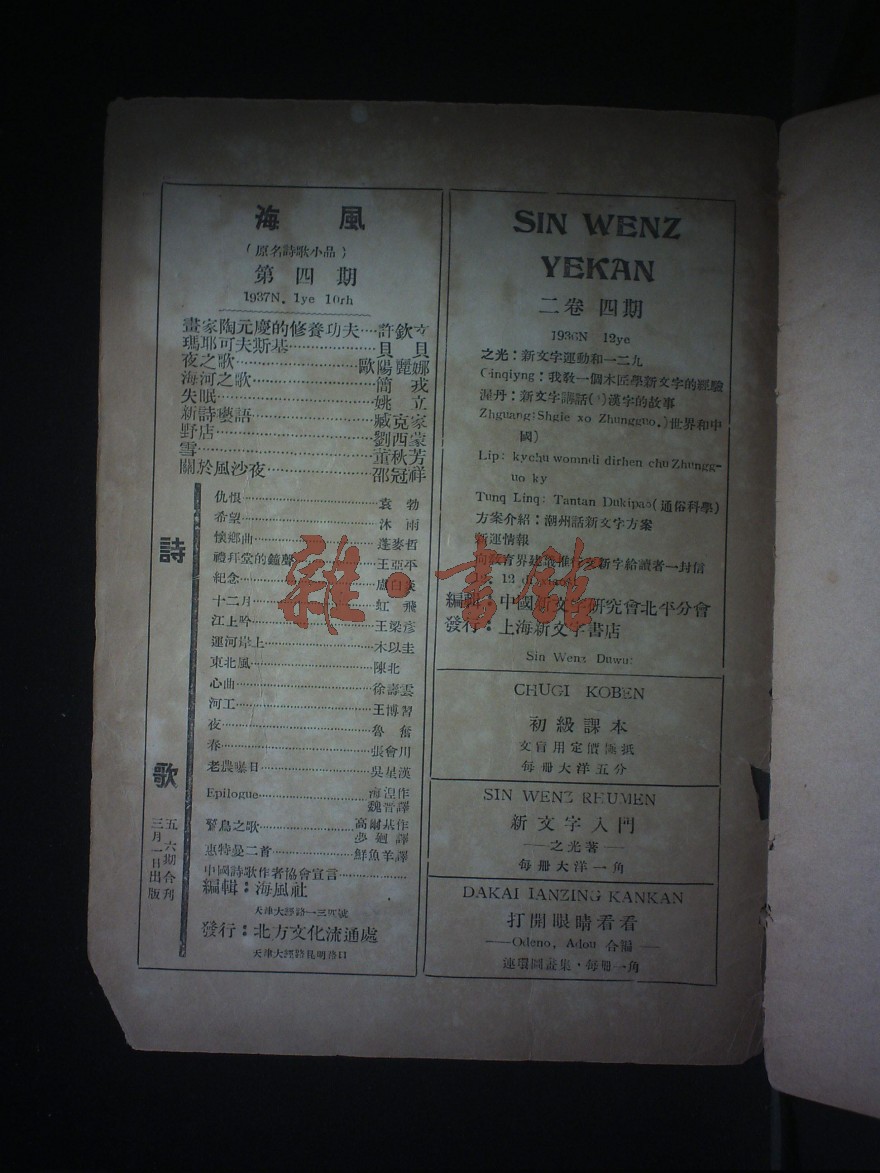 海風
(原名詩歌小品)
第四期
1937N. 1ye 10rh
畫家陶元慶的修養功夫…許欽文
瑪耶可夫斯基…貝貝
夜之歌…歐陽麗娜
海河之歌…簡戎
失眠…姚立
新詩藝語…臧克家
野店…劉西蒙
雪…董秋芳
關於風沙夜…邵冠祥
詩歌
五六期合刊
三月一日出版
仇恨…袁勃
希望…沐雨
懷鄉曲…蓬麥哲
禮拜堂的鐘聲…王亞平
紀念…
十二月…虹飛
江上吟…王梁彥
運河岸上…木以圭
東北風…陳北
心曲…徐壽雲
河工…王博習
夜…魯奮
春…張會川
老農曝日…吳星漢
Epilogue…海涅作
魏晋譯
鷙鳥之歌…高爾基作
步廻譯
惠特曼二首…鮮魚羊譯
中國詩歌作者協會宣言…
編輯：海風社
天津大經路一三四號
發行：北方文化流通處
天津大經路昆明路口
SIN WENZ
YEKAN
二卷四期
1936N 12ye
之光：新文字運動和一二九
Cinqiyng：我教一個木匠學新文字的經驗
渥丹：新文字講話 漢字的故事
Zhguang: Shgie xo Zhungguo.》世界和中
國)
Lip: kychu womndi dirhen chu Zhungg-
uo ky
Tunq Linq: Tantan Dukipao(通俗科學)
方案介紹：潮州話新文字方案
新運情報
向教育界建議推行 新字給讀者一封信
編輯：中國新文字研究會北平分會
發行：上海新文字書店
Sin Wenz Duwu:
CHUGI KOBEN
初級課本
文盲用定價極抵
每冊大洋五分
SIN WENZ RHUMEN
新文字入門
——之光著——
每冊大洋一角
DAKAI IANZING KANKAN
打開眼睛看看
——Odeno, Adou 合編——
連環圖畫集·每冊一角
雜·書館